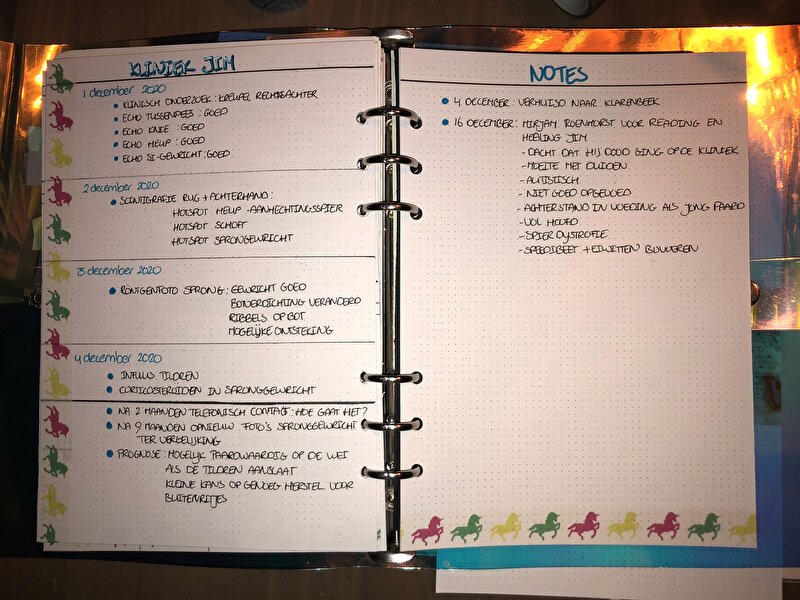 KLINIEK JIM
1 december 2020
KLINISCH ONDERZOEK: KREUPEL RECHTSACHTER
ECHO TUSSENPEES: GOED
ECHO KNIE : GOED
ECHO HEUP : GOED
ECHO SI-GEWRICHT: GOED
2 december 2020
SCINTIGRAFIE RUG + ACHTERHAND:
HOTSPOT HEUP - AANHECHTINGSSPIER
HOTSPOT SCHOFT
HOTSPOT SPRONGGEWRICHT
3 december 2020
RÖNTGENFOTO SPRONG: GEWRICHT GOED
BOTVERDICHTING VERANDERD
RIBBELS OP BOT
MOGELIJKE ONTSTEKING
4 december 2020
INFUUS TILDREN
CORTICOSTEROIDEN IN SPRONGGEWRICHT
NA 2 MAANDEN TELEFONISCH CONTACT: HOE GAAT HET?
NA 9 MAANDEN OPNIEUW FOTO'S SPRONGGEWRICHT
TER VERGELIJKING
PROGNOSE: MOGELIJK PAARDWAARDIG OP DE WEI
ALS DE TILDREN AANSLAAT
KLEINE KANS OP GENOEG HERSTEL VOOR
BUITENRITJES
NOTES
4 DECEMBER: VERHUISD NAAR KLARENBEEK
16 DECEMBER: MIRJAM ROENHORST VOOR READING EN
HEALING JIM
- DACHT DAT HIJ DOOD GING OP DE KLINIEK
- MOEITE MET DUIDEN
- AUTISTISCH
- NIET GOED OPGEVOED
- ACHTERSTAND IN VOEDING ALS JONG PAARD
- VOL HOOFD
- SPIERDYSTROFIE
- SPEEDIBEET + EIWITTEN BIJVOEREN